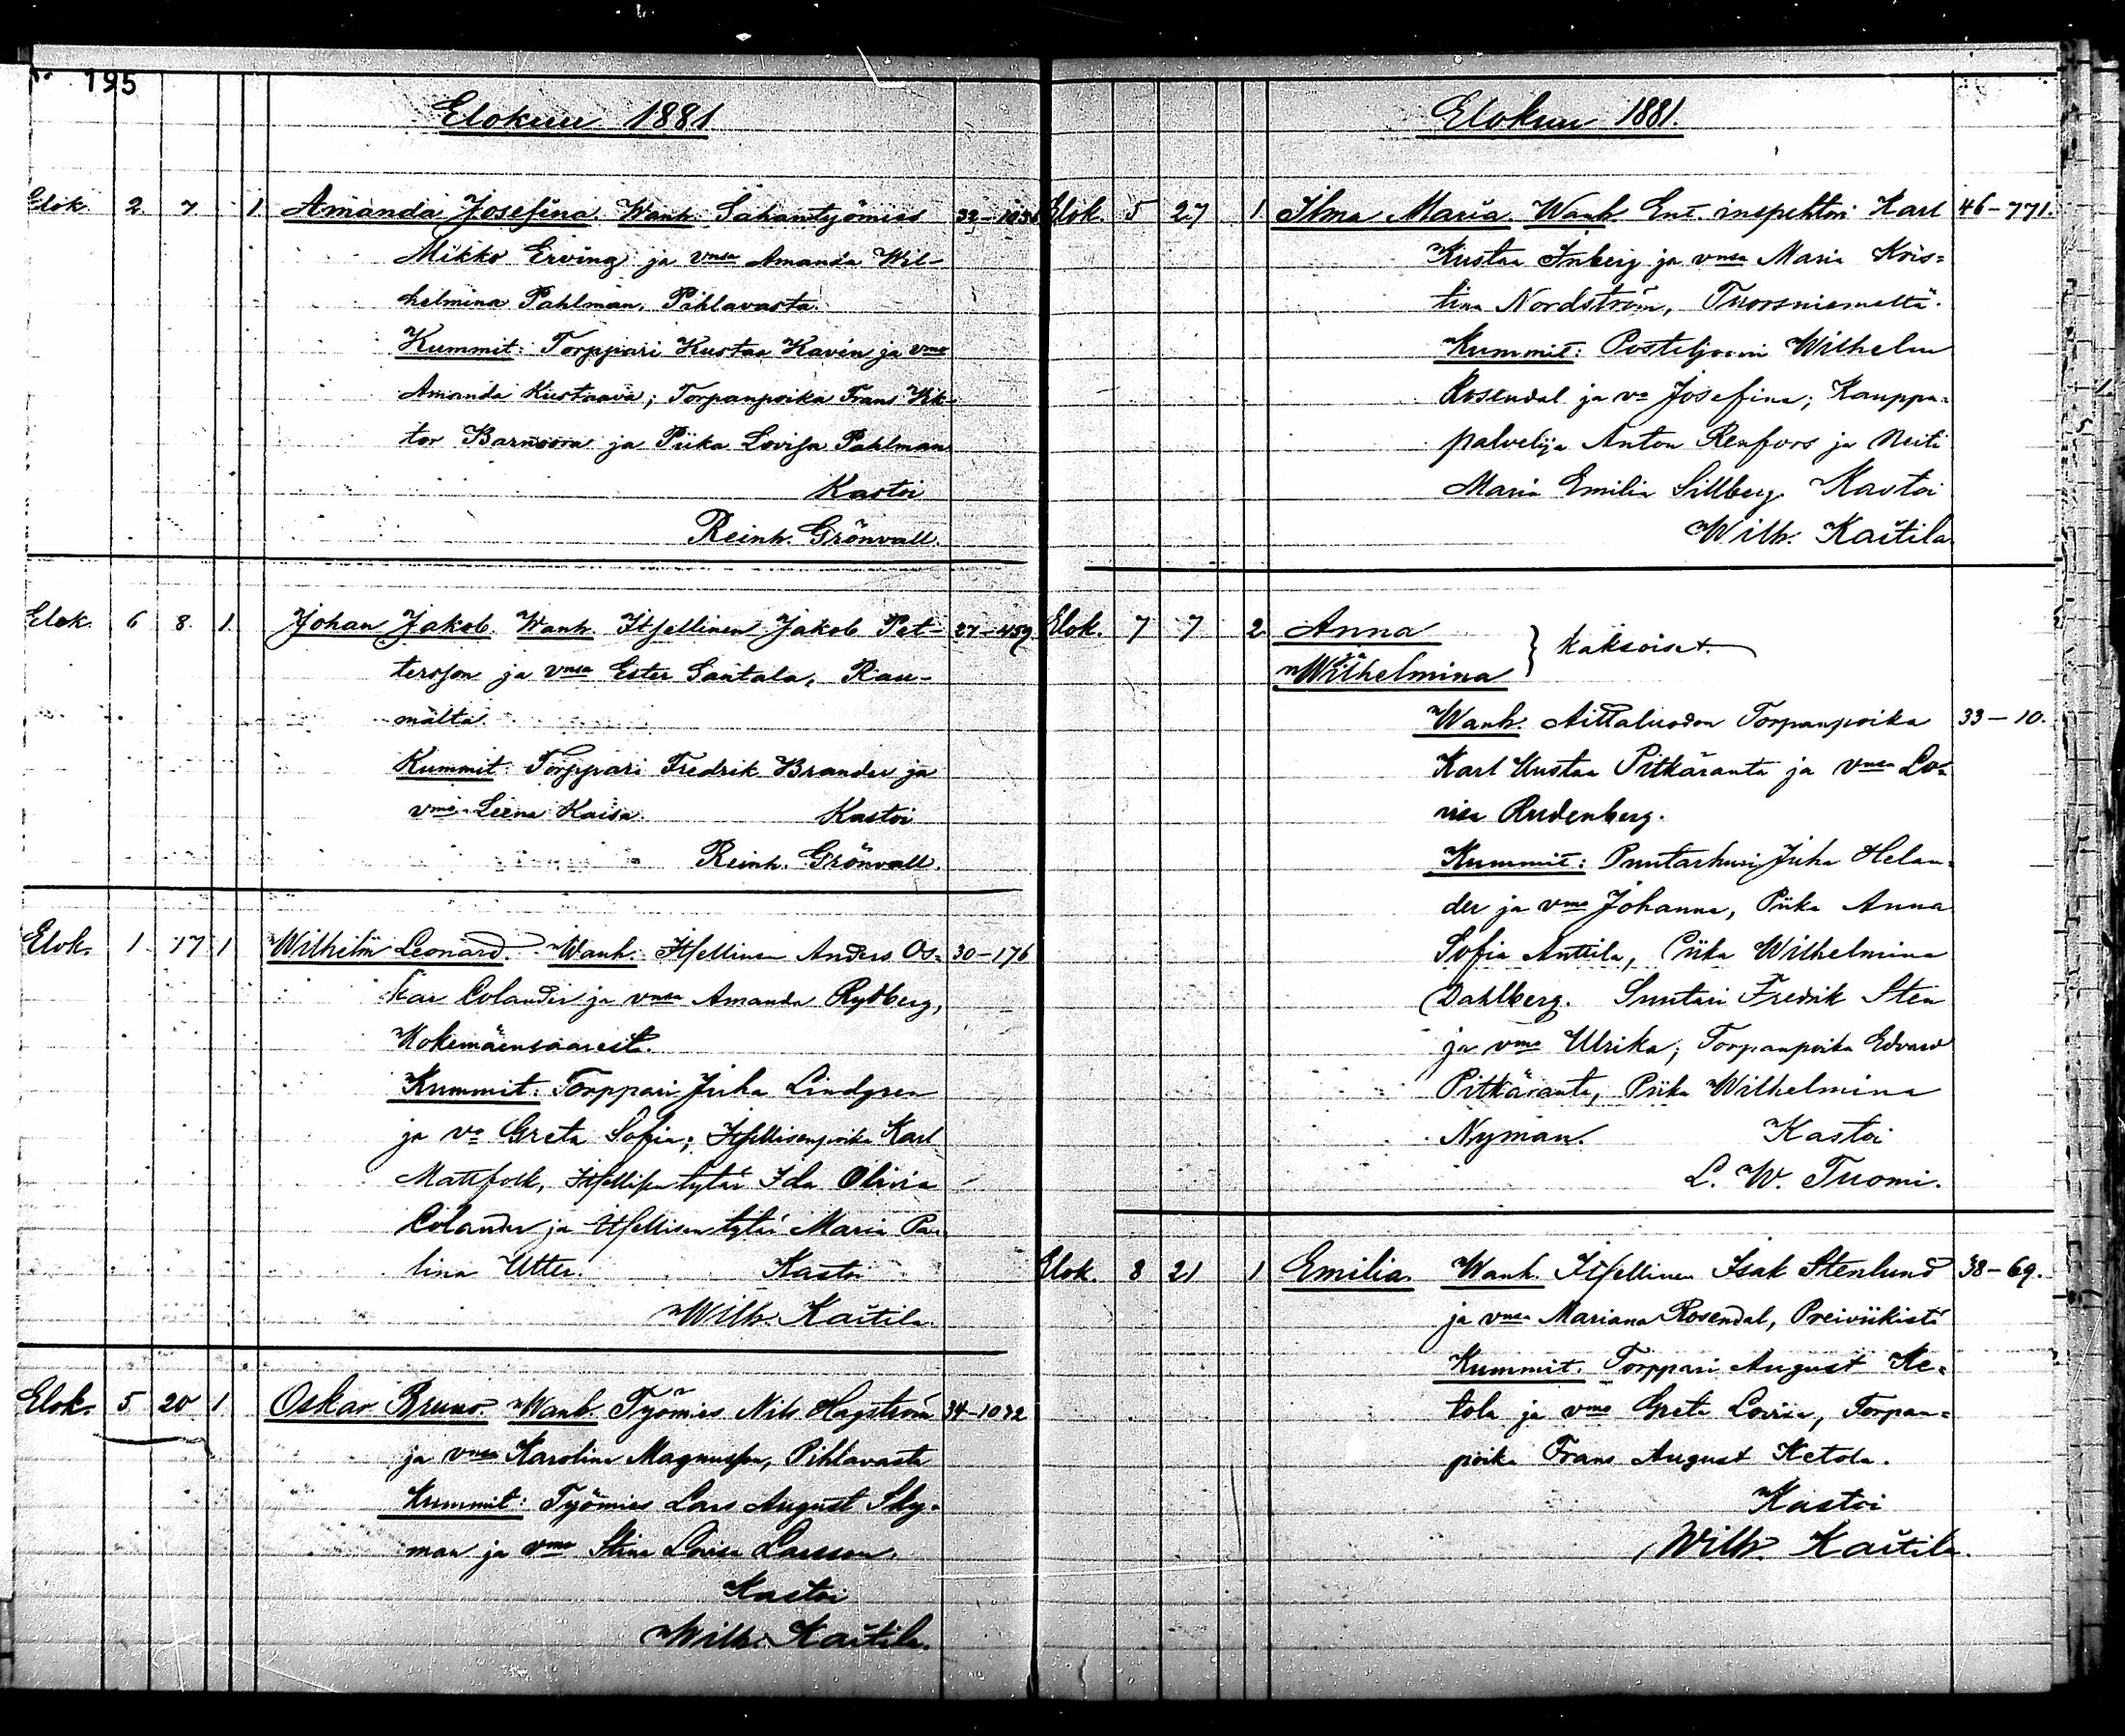 195
Elokuu 1881
Elok. 2 7 1 Amanda Josefina. Wanh. Sahantyömies
Mikko Erving ja vmsa Amanda Wil-
helmina Pahlman, Pihlavasta.
Kummit: Torppari Kustaa Kavén ja vmo
Amanda Kustaava; Torpanpoika Frans Vik-
tor ja Piika Lovisa Pahlman
Kastoi
Reinh. Grönvall.
Elok. 6 8 1. Johan Jakob. Wanh. Itsellinen Jakob Pet- 27-459
tersson ja vmsa Ester Santala, Rau-
malta.
Kummit: Torppari Fredrik Brander ja
vmo Leena Kaisa. Kastoi
Reinh. Grönvall.
Elok. 1 17 1 Wilhelm Leonard. Wanh. Itsellinen Anders Os- 30-176
kar Colander ja vmsa Amanda Rydberg,
Kokemäensaarest.
Kummit: Torppari Juha Lindgren
ja vo Greta Sofia; Itsellisenpoika Karl
Mattfolk, Itsellisen tytär Ida Olivia
Colander ja Itsellisen tytär Maria Pau
lina Utter. Kastoi
Wilh. Kaitila.
Elok. 5 20 1. Oskar Bruno. Wanh. Työmies Nils Hagström 34-1042
ja vmsa Karolina Magnusson, Pihlavasta
Kummit: Työmies Lars August
man ja vmo Stina Lovisa Larsson.
Kastoi
Wilh. Kaitila.
Elokuu 1881.
Elok. 5 27 1 Ilma Maria. Wanh. Ent. inspehtori Karl 46-771.
Kustaa Inberg ja vmsa Maria Kris=
tina Nordström, Tuorsniemeltä.
Kummit: Posteljooni Wilhelm
Rosendal ja vo Josefina; Kauppa=
palvelija Anton Renfors ja Neiti
Maria Emilia Sillberg. Kastoi
Wilh. Kaitila.
Elok. 7 7 2 Anna
ja } kaksoiset.
Wilhelmina
Wanh. Aittaluodon Torpanpoika 33-10.
Karl Kustaa Pitkäranta ja vmsa Lo=
visa Rudenberg.
Kummit: Puutarhuri Juha Helan=
der ja vmo Johanna, Piika Anna
Sofia Anttila, Piika Wilhelmina
Dahlberg. Suutari Fredrik Sten
ja vmo Ulrika; Torpanpoika Edvard
Pitkäranta, Piika Wilhelmina
Nyman. Kastoi
L. W. Tuomi.
Elok. 8 21 1 Emilia. Wanh. Itsellinen Isak Stenlund 38-69.
ja vmsa Mariana Rosendal, Preiviikistä
Kummit. Torppari August Ke=
tola ja vmo Greta Lovisa, Torpan=
poika Frans August Ketola.
Kastoi
Wilh. Kaitila.